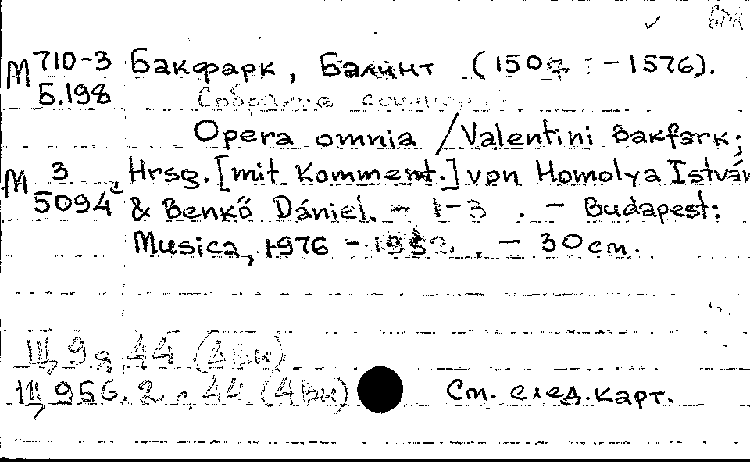 БРК
М 710-3 Бакфарк, Балинт (1507 - 1576).
Б.198 Собрание сочинений
Opera omnia / Valentini Bakfark;
М 3 Hrsg. [mit Komment.] von Homolya István
5094 & Benkő Dániel. - 1-3 . - Budapest:
Musica, 1976 - 1982. - 30 cm.
Щ 9 44 (4Ви)
Щ 956.2 44 (4Ви) См. след. карт.